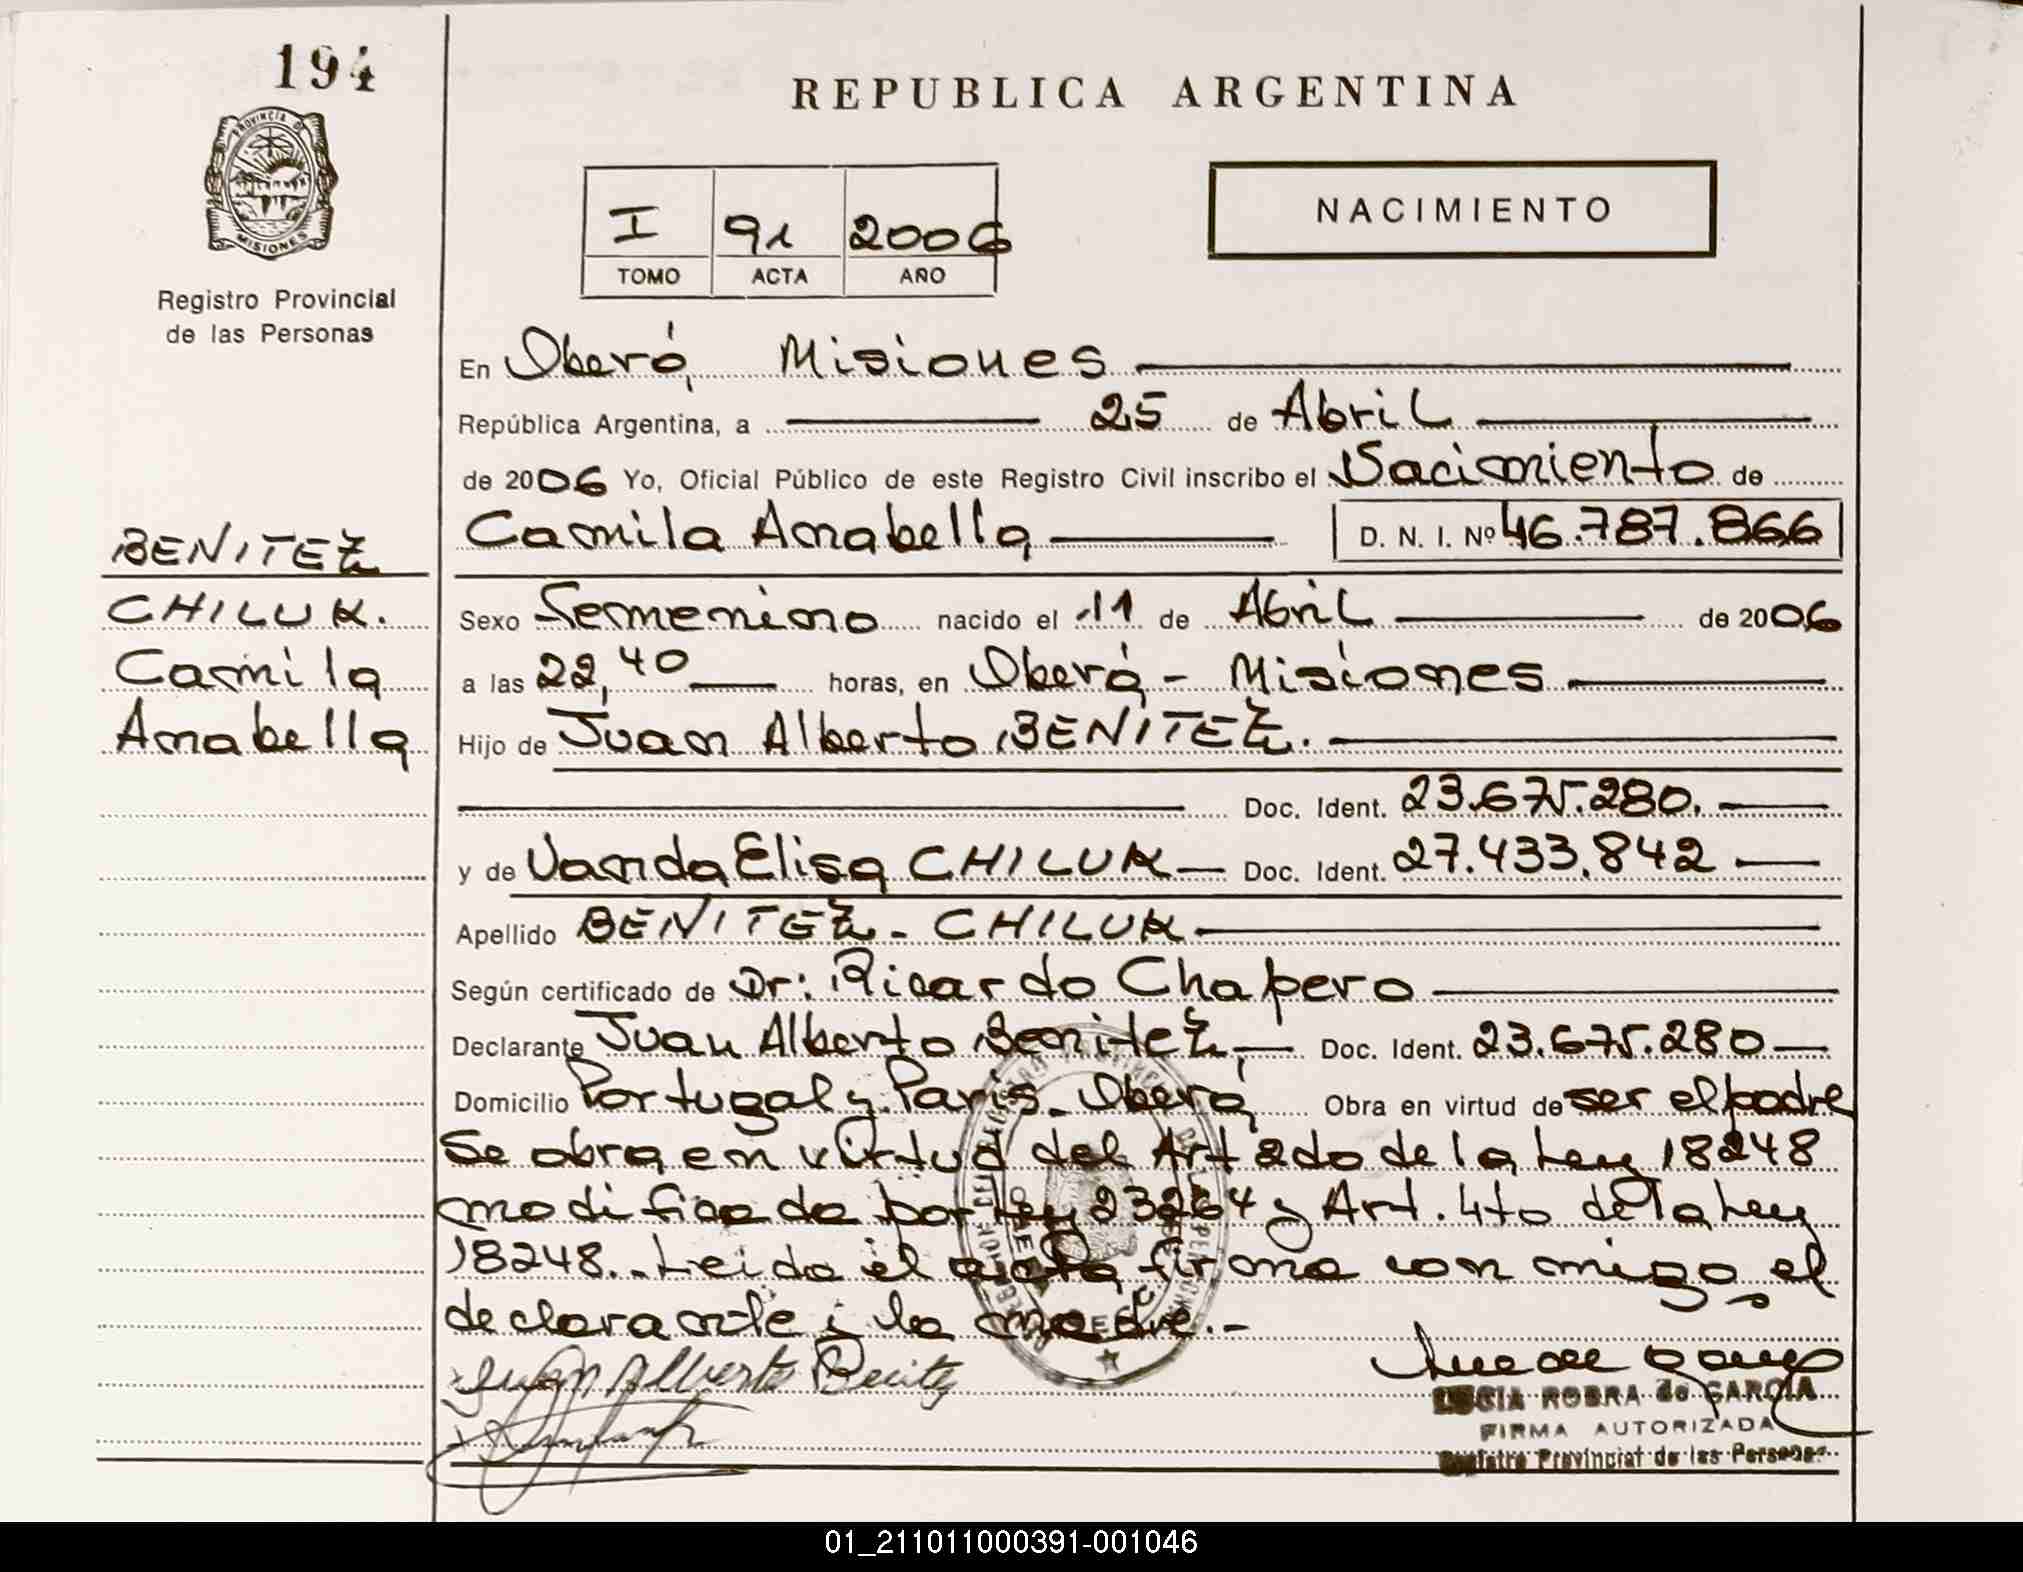 194
PROVINCIA DE
MISIONES
Registro Provincial
de las Personas
BENITEZ
CHILUK.
Camila
Anabella
REPUBLICA ARGENTINA
I 91 2006
TOMO ACTA AÑO
NACIMIENTO
En Oberá, Misiones
República Argentina, a 25 de Abril
de 2006 Yo, Oficial Público de este Registro Civil inscribo el Nacimiento de
Camila Anabella D. N. I. Nº 46.787.866
Sexo Femenino nacido el 11 de Abril de 2006
a las 22,40 horas, en Oberá - Misiones
Hijo de Juan Alberto BENITEZ.
Doc. Ident. 23.675.280.
y de Vanda Elisa CHILUK Doc. Ident. 27.433.842
Apellido BENITEZ - CHILUK
Según certificado de Dr: Ricardo Chapero
Declarante Juan Alberto Benitez, Doc. Ident. 23.675.280
Domicilio Portugal y París - Oberá Obra en virtud de ser el padre
Se obra en virtud del Art 2do de la Ley 18248
modificada por Ley 23264 y Art. 4to de la Ley
18248.- Leida el acta firma con migo el
declarante y la madre.-
Juan Alberto Benitez
LUCIA ROBRA de GARCIA
FIRMA AUTORIZADA
Registro Provincial de las Personas
01_211011000391-001046